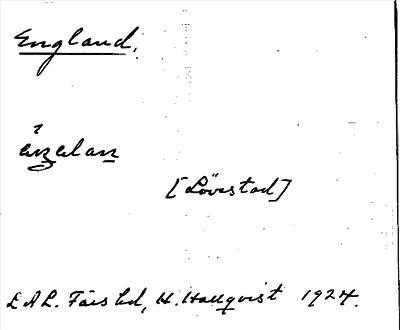 England.
[Lövestad]
L A L. Färs hd, H. Hallqvist 1924.